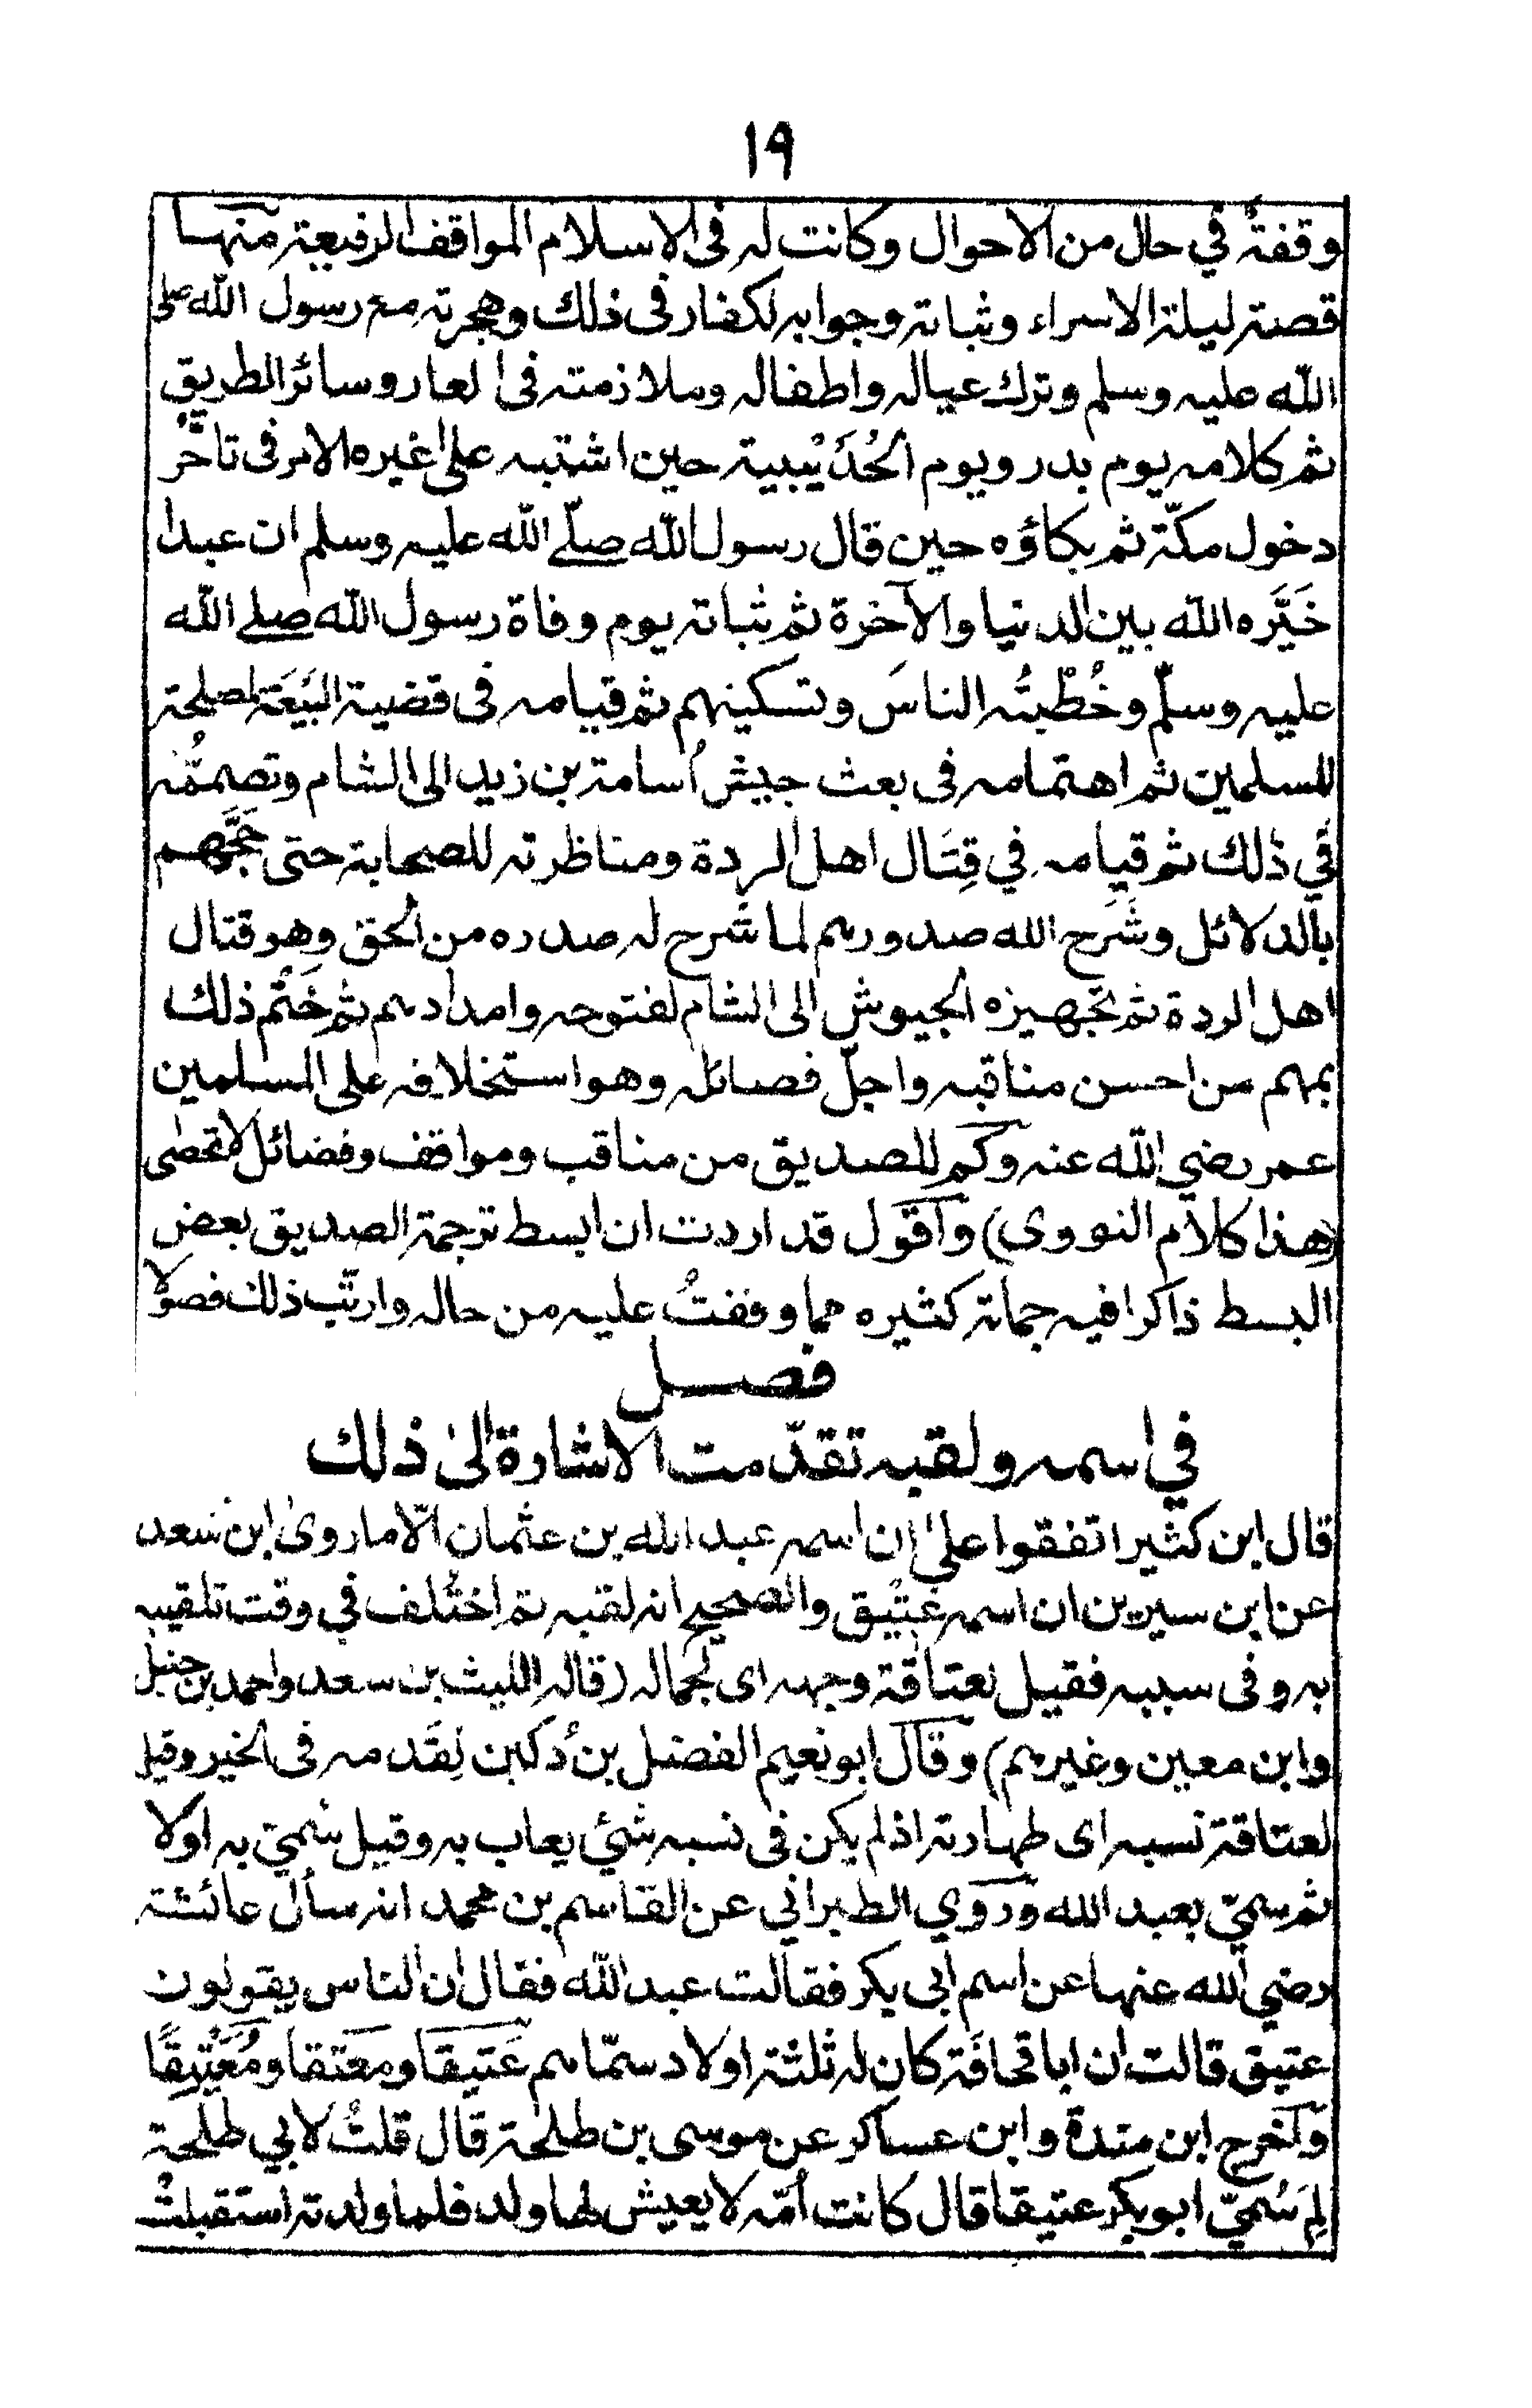 ١٩
وقفةٌ في حال من الاحوال وكانت له فى الاسلام المواقف الرفيعة منها
قصته ليلة الاسراء وثباته وجوابه لكفار فى ذلك وهجرته مع رسول الله صلى
الله عليه وسلم وترك عياله واطفاله وملازمته فى الغار وسائر الطريق
ثم كلامه يوم بدر ويوم الحُدَيْبية حين اشتبه على غيره الامر فى تاخّر
دخول مكّة ثم بكاؤه حين قال رسول الله صلّے الله عليه وسلم ان عبدا
خَيَّره الله بين الدنيا والآخرة ثم ثباته يوم وفاة رسول الله صلے الله
عليه وسلّم وخُطْبتُه الناسَ وتسكينهم ثم قيامه فى قضية البَيعَة لمصلحة
للمسلمين ثم اهتمامه فى بعث جيش اُسامة بن زيد الى الشام وتصمّمُه
في ذلك ثم قيامه في قِتَال اهل الردة ومناظرته للصحابة حتى حَجَّهم
بالدلائل وشَرح الله صدورهم لما شَرح له صدره من الحق وهو قتال
اهل الردة ثم تجهيزه الجيوش الى الشام لفتوحه وامدادهم ثم خَتَم ذلك
بمهم من احسن مناقبه واجلّ فصائله وهو استخلافه على المسلمين
عمر رضي الله عنه وكم للصديق من مناقب ومواقف وفضائل لا تحصٰى
(هذا كلام النووى) وَاَقول قد اردت ان ابسط ترجمة الصديق بعض
البسط ذاكرا فيه جماته كثيره مما وقفتُ عليه من حاله وارتّب ذلك فصولا
فصل
في اسمه ولقبه تقدّمت الاشارة الىٰ ذلك
قال ابن كثير اتفقوا علىٰ ان اسمه عبد الله بن عثمان الّا ما روىٰ ابن سعد
عن ابن سيرين ان اسمه عَتيق والصحيح انه لقبه ثم اختُلف في وقت تلقيبه
به وفى سببه فقيل لعتاقة وجهه اى لجماله (قاله الليث بن سعد واحمد بن حنبل
وابن معين وغيرهم) وقال ابو نعيم الفضل بن دُكين لِقَدمه فى الخير وقيل
لعتاقة نسبه اى طهارته اذ لم يكن فى نسبه شئ يعاب به وقيل سُميّ به اولا
ثم سميّ بعبد الله وروي الطبراني عن القاسم بن محمد انه سأل عائشة
رضي الله عنها عن اسم ابى بكر فقالت عبد الله فقال ان الناس يقولون
عتيق قالت ان ابا قحافَة كان له ثلثة اولاد سمّاهم عَتيقا ومعَتقا ومُعَيْتِقًا
وَاَخرج ابن مندة وابن عساكر عن موسى بن طلحة قال قلتُ لابي طلحة
لِمَ سُميّ ابو بكر عتيقا قال كانت اُمّه لا يعيش لها ولد فلما ولدته استقبلتْ